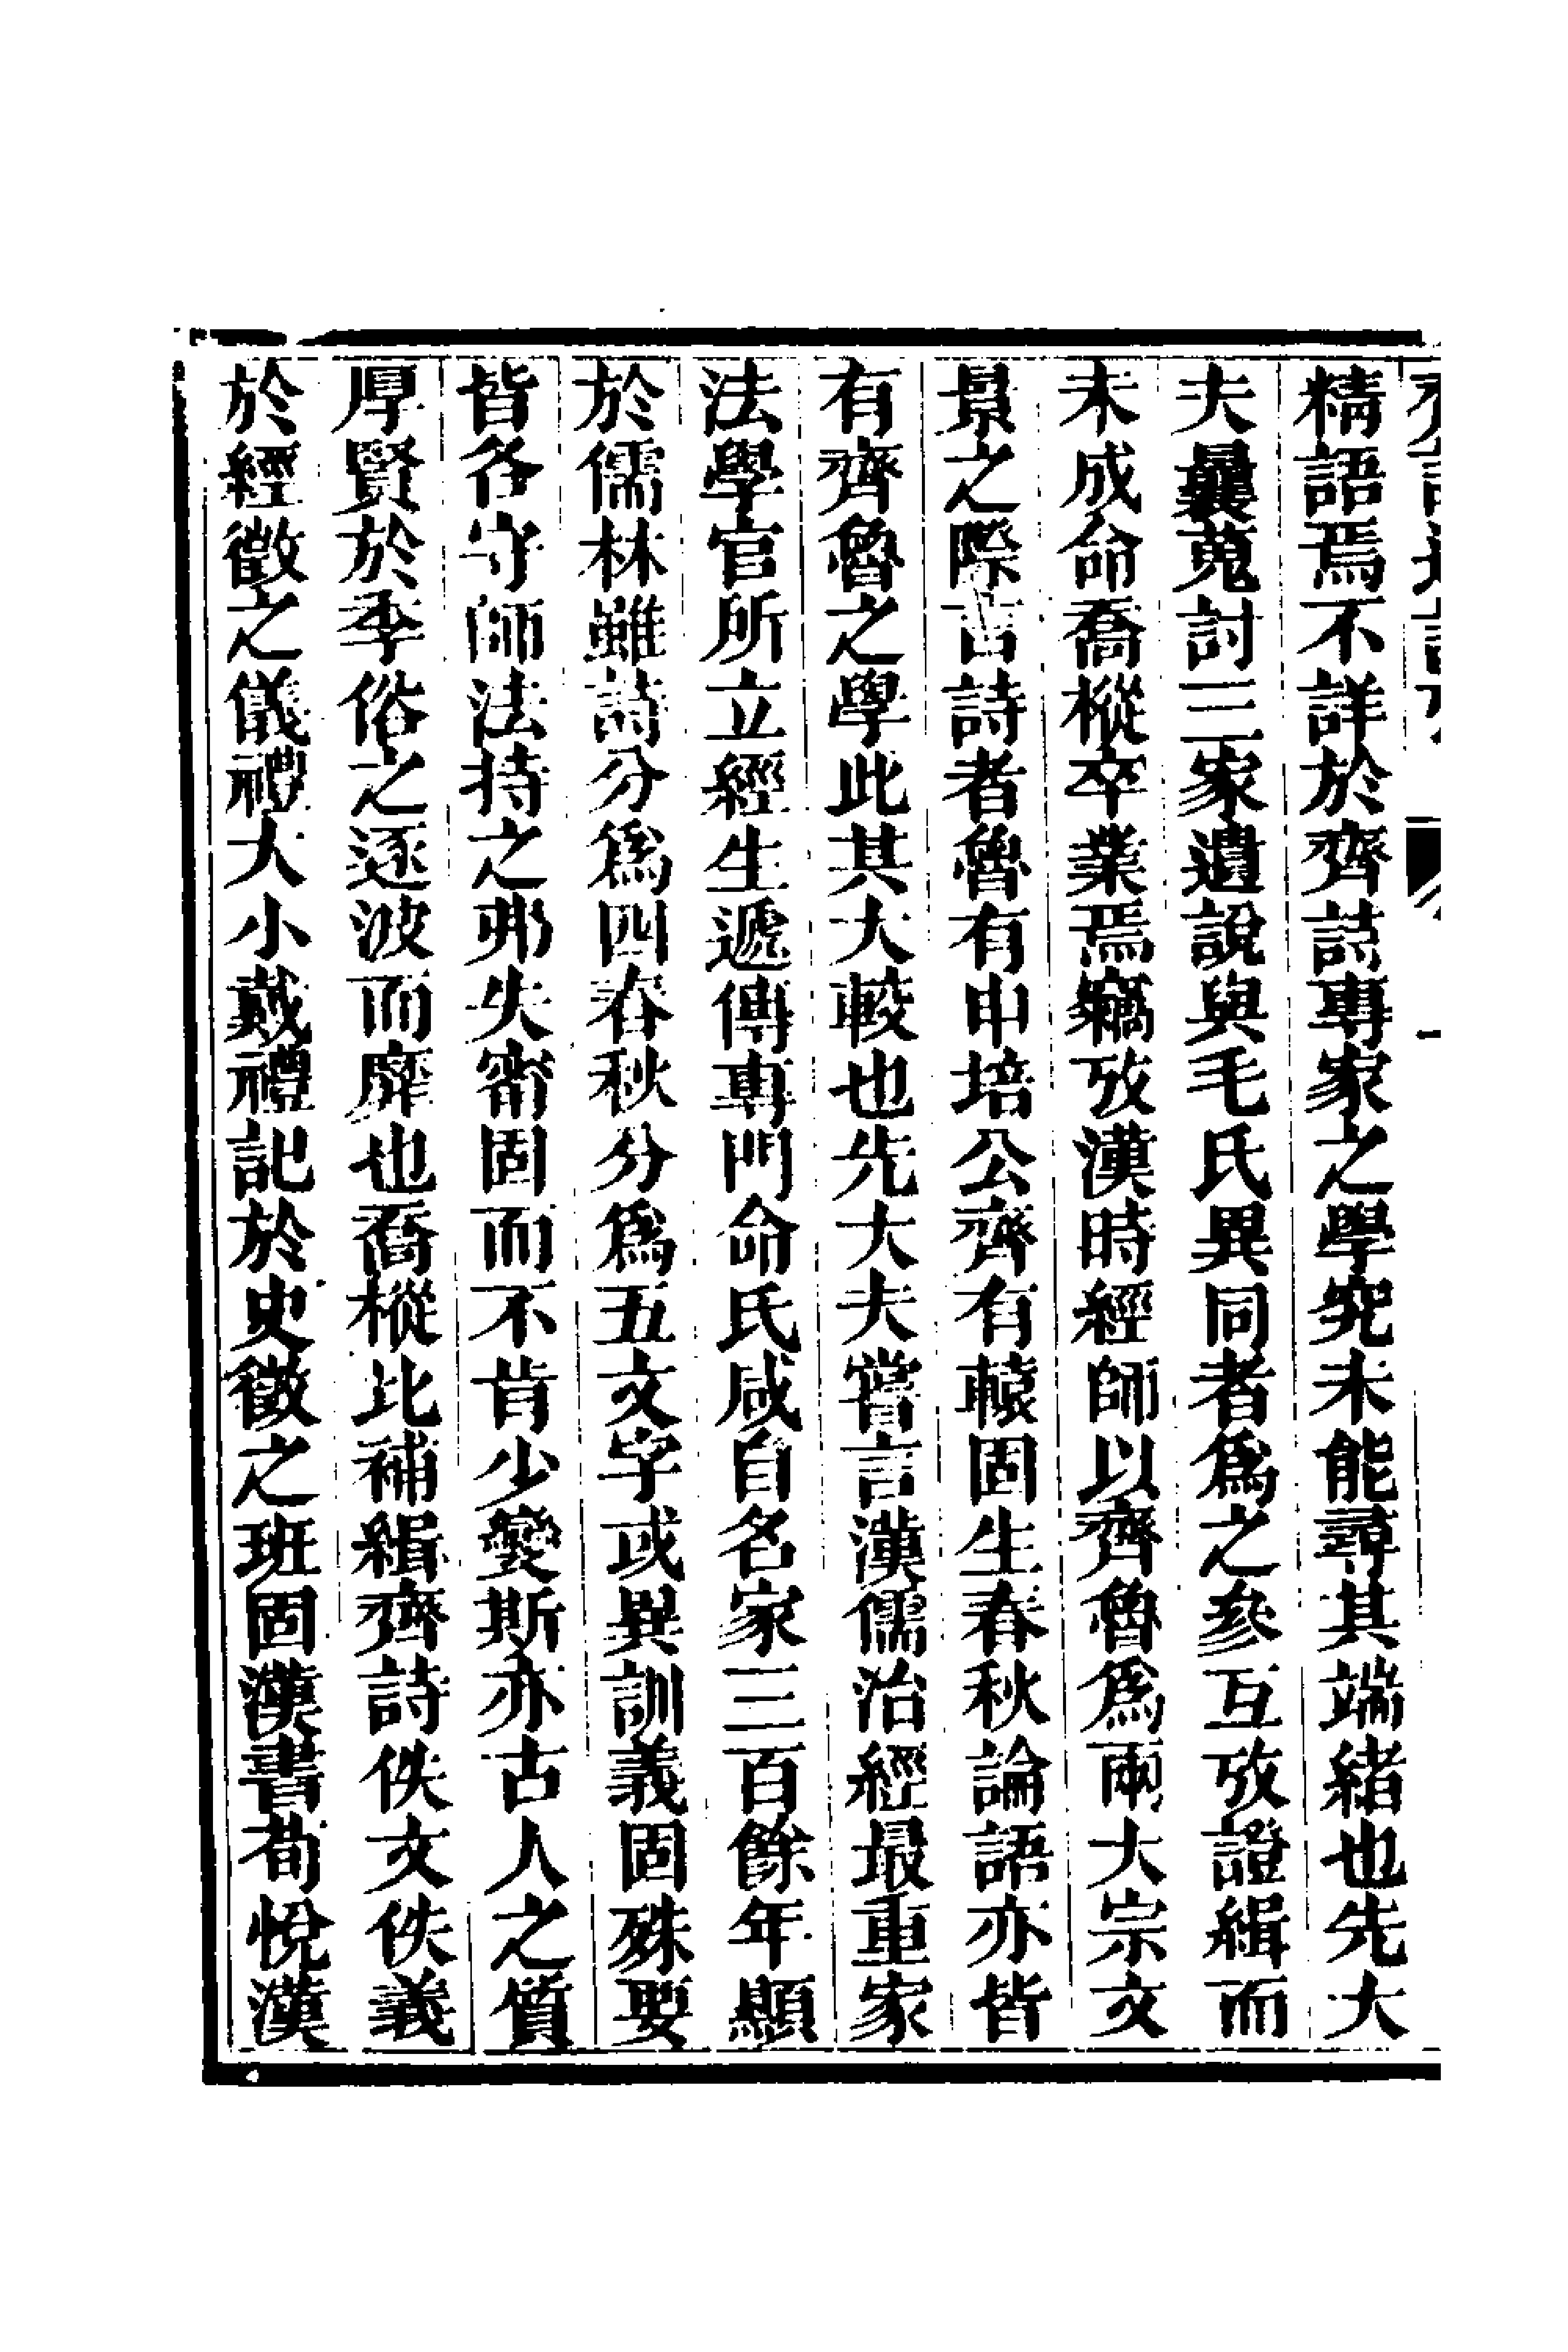 精語焉不詳於齊詩專家之學究未能尋其端緒也先大
夫曩蒐討三家遺說與毛氏異同者爲之參互攷證緝而
未成命喬樅卒業焉竊攷漢時經師以齊魯爲兩大宗文
景之際言詩者魯有申培公齊有轅固生春秋論語亦皆
有齊魯之學此其大較也先大夫嘗言漢儒治經最重家
法學官所立經生遞傳專門命氏咸自名家三百餘年顯
於儒林雖詩分爲四春秋分爲五文字或異訓義固殊要
皆各守師法持之弗失甯固而不肯少變斯亦古人之質
厚賢於季俗之逐波而靡也喬樅比補緝齊詩佚文佚義
於經徵之儀禮大小戴禮記於史徵之班固漢書荀悅漢